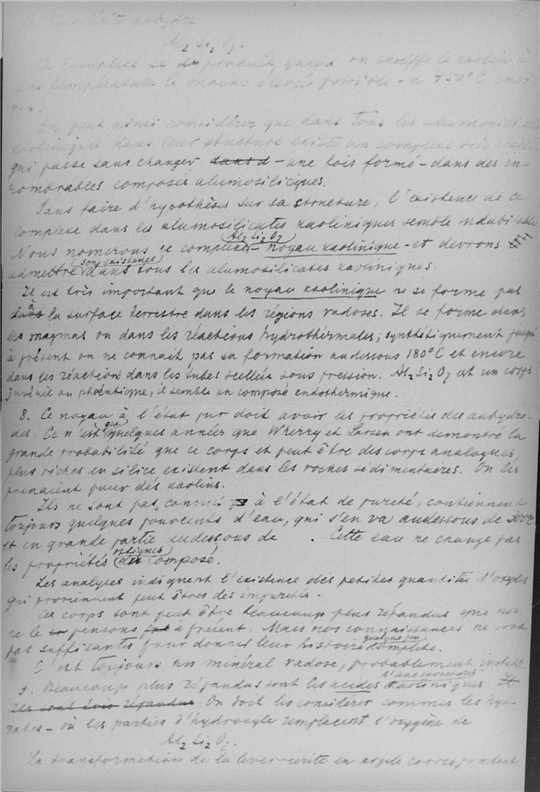 anhydre
Al₂ Si₂ O₇.
Ce complexe se produit, quand on chauffe le kaolin à
une température la moins élevée possible - à 450°C envi-
ron.
On peut ainsi considérer que dans tous les alumosilicates
kaoliniques dans leur structure existe un complexe très stable
qui passe sans changer - une fois formé - dans des in-
nombrables composés alumosiliciques.
Sans faire d'hypothèses sur sa structure, l'existence de ce
complexe dans les alumosilicates kaoliniques semble indubitable.
Nous nomerons ce complexe Al₂ Si₂ O₇ - noyau kaolinique - et devrons
admettre son existence dans tous les alumosilicates kaoliniques.
Il est très important que le noyau kaolinique ne se forme pas
à la surface terrestre dans les régions vadoses. Il se forme dans
les magmas ou dans les réactions hydrothermales; synthétiquement jusqu'
à présent on ne connait pas sa formation audessous 180°C et encore
dans les réactions dans les tubes scellés sous pression. Al₂ Si₂ O₇ est un corps
juvénil ou phréatique, il semble un composé endothermique.
8. Ce noyau à l'état pur doit avoir les propriétés des anhydri-
des. Ce n'est que quelques années que Wherry et Larsen ont démontré la
grande probabilité que ce corps et peut être des corps analogues,
plus riches en silice existent dans les roches sédimentaires. On les
prenaient pour des kaolins.
Ils ne sont pas connus à l'état de pureté, contiennent
toujours quelques pourcents d'eau, qui s'en va audessous de 300°C
et en grande partie audessous de . Cette eau ne change pas
les propriétés optiques du composé.
Les analyses indiquent l'existence des petites quantités d'oxydes
qui proviennent peut êtres des impuretés.
Ces corps sont peut être beaucoup plus répandus que nou
ne le pensons à présent. Mais nos connaissances ne sont
pas suffisantes pour donner leur histoire quelque peu complete.
C'est toujours un minéral vadose, probablement
9. Beaucoup plus répandus sont les acides kaoliniques
On doit les considérer commes les hyd-
rates - où les parties d'hydroxyle remplacent l'oxygène de
Al₂ Si₂ O₇.
La transformation de la leverrierite en argile correspondant